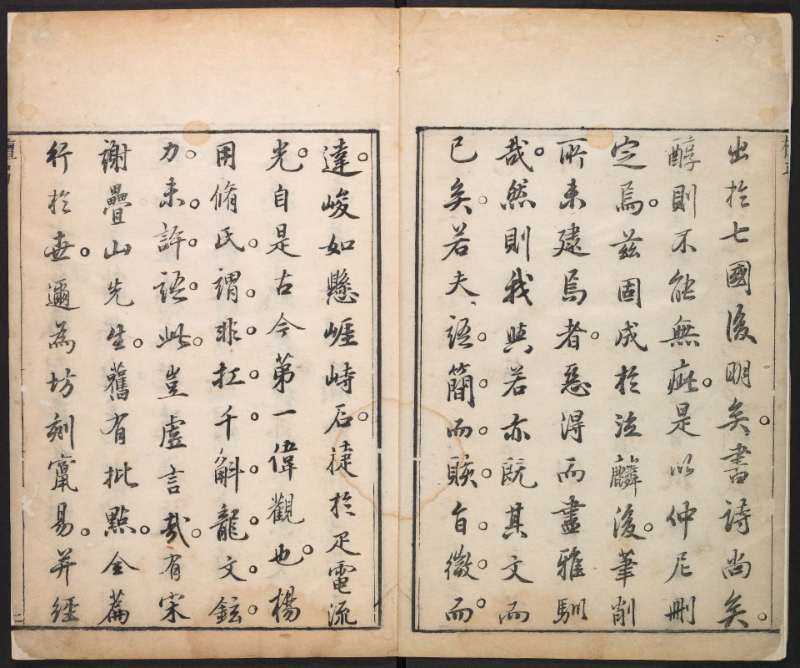 出於七國後明矣書詩尚矣
醇則不能無疵是以仲尼刪
定焉茲固成於泣麟後筆削
所未建焉者惡得而盡雅馴
哉然則我與若亦既其文而
已矣若夫語簡而賅旨微而
達峻如懸崕峙石徒於疋電流
光自是古今第一偉觀也楊
用脩氏謂非扛千斛龍文鉉
力未許語此豈虛言哉有宋
謝疊山先生舊有批點全篇
行於世邇為坊刻竄易并經